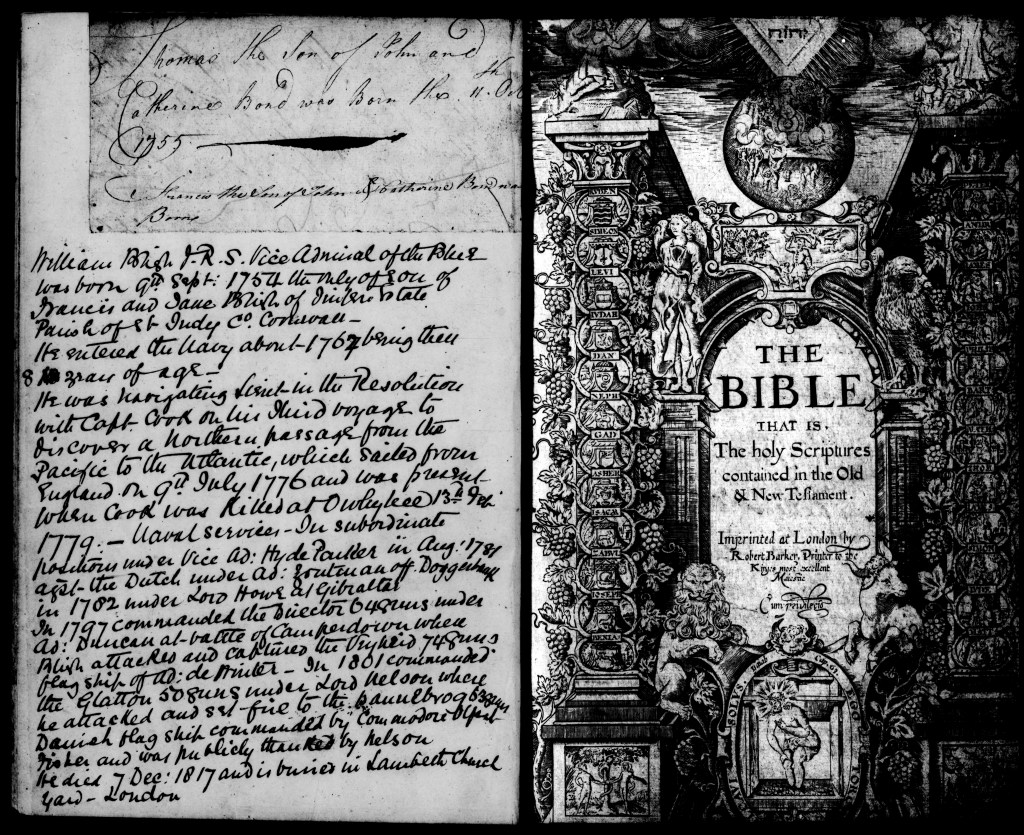 Thomas the Son of John and
Catherine Bond was Born the 11th Oct
1755
Francis the Son of John & Catherine Bond was
Born
William Bligh F.R.S. Vice Admiral of the Blue
was born 9th Sept: 1754 the only son of
Francis and Jane Bligh of
Parish of St Tudy Co. Cornwall -
He entered the Navy about 1762 being then
8 years of age -
He was Navigating Lieut in the Resolution
with Capt. Cook on his third voyage to
discover a Northern passage from the
Pacific to the Atlantic, which sailed from
England on 9th July 1776 and was present
when Cook was killed at Owhyhee 13th Feb:
1779: - Naval services - In subordinate
positions under Vice Ad: Hyde Parker in Aug: 1781
agst the Dutch under Ad: Zoutman off Doggerbank
in 1782 under Lord Howe at Gibraltar
In 1797 commanded the Director 64 guns under
Ad: Duncan at battle of Camperdown where
Bligh attacked and captured the Vryheid 74 guns
flag ship of Ad: de Winter - In 1801 commanded
the Glatton 50 guns under Lord Nelson where
he attacked and set fire to the Dannebrog 63 guns
Danish flag ship commanded by Commodore Olfert
Fisher and was publicly thanked by Nelson
He died 7 Dec: 1817 and is buried in Lambeth Church
Yard - London
יהוה
RUBEN
SIMEON
LEVI
IUDAH
DAN
NEPH
GAD
ASHER
ISACH
ZABVL
IOSEPH
BENIA
THE
BIBLE
THAT IS,
The holy Scriptures
contained in the Old
& New Testament.
Imprinted at London by
Robert Barker, Printer to the
Kings most excellent
Maiestie
Cum privilegio